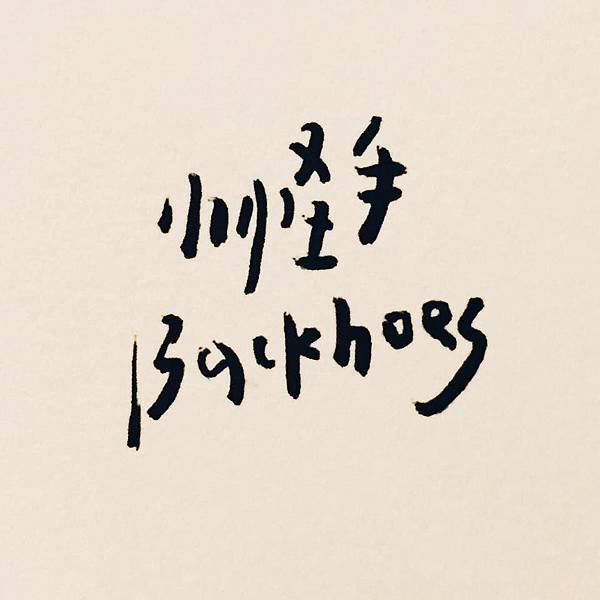 小川怪手
Backhoes